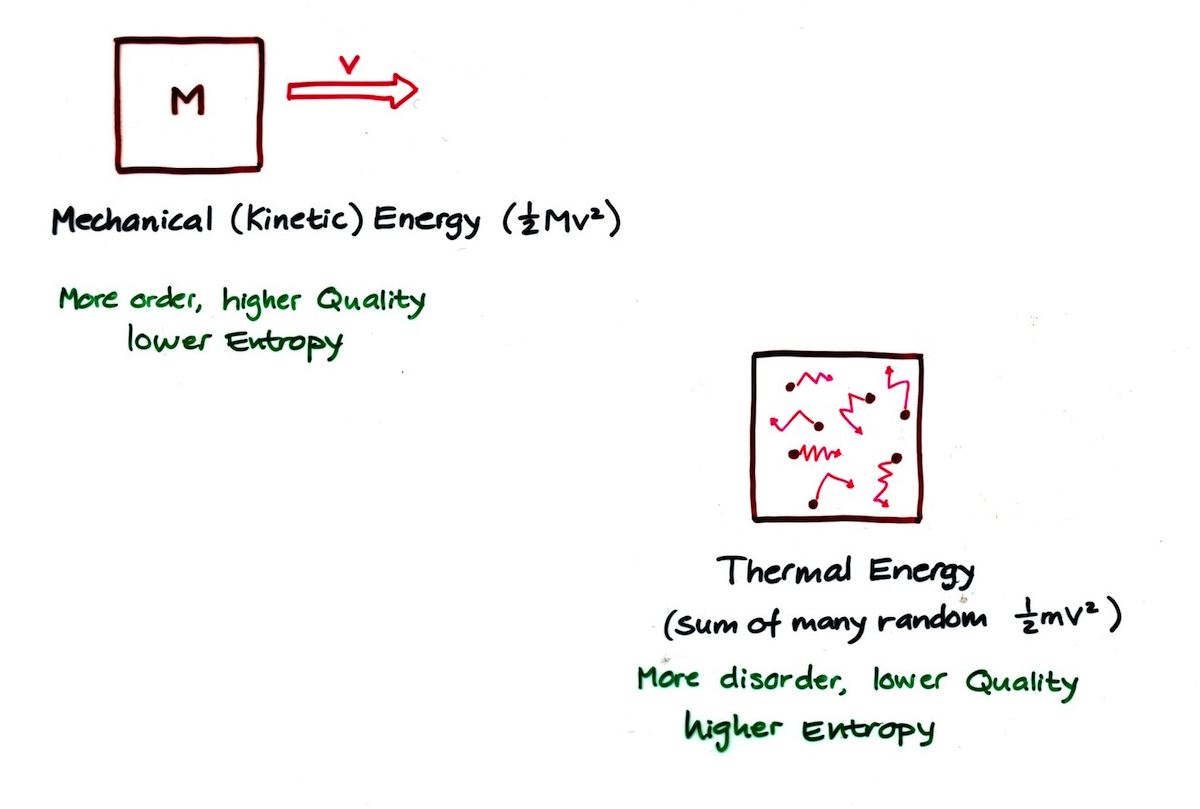 M
v
Mechanical (Kinetic) Energy (½Mv²)
More order, higher Quality
lower Entropy
Thermal Energy
(sum of many random ½mv²)
More disorder, lower Quality
higher Entropy